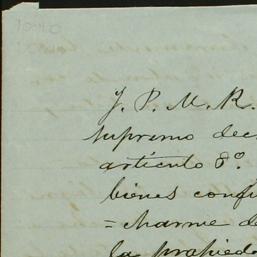 J. P. M. R.
supremo dec
artículo 8º.
bienes confi
= charme de
la propied